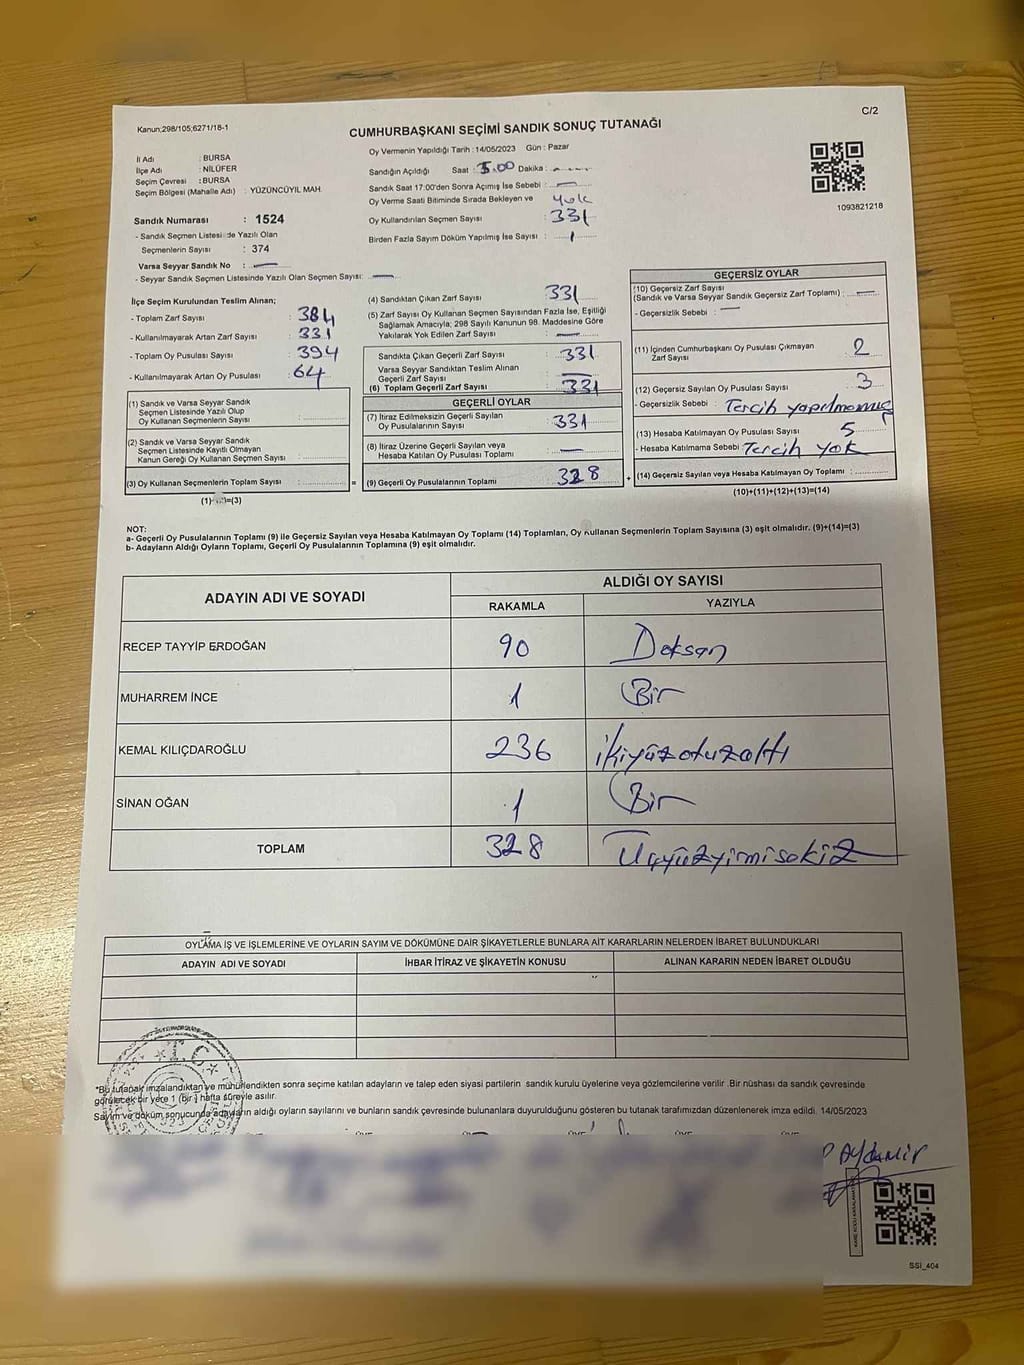 C/2
Kanun;298/105;6271/18-1
CUMHURBAŞKANI SEÇİMİ SANDIK SONUÇ TUTANAĞI
İl Adı : BURSA
İlçe Adı : NİLÜFER
Seçim Çevresi : BURSA
Seçim Bölgesi (Mahalle Adı) : YÜZÜNCÜYIL MAH.
Sandık Numarası : 1524
- Sandık Seçmen Listesinde Yazılı Olan
Seçmenlerin Sayısı : 374
Varsa Seyyar Sandık No : —
- Seyyar Sandık Seçmen Listesinde Yazılı Olan Seçmen Sayısı: —
Oy Vermenin Yapıldığı Tarih : 14/05/2023 Gün : Pazar
Sandığın Açıldığı Saat : 5:00 Dakika :
Sandık Saat 17:00'den Sonra Açımış İse Sebebi : —
Oy Verme Saati Bitiminde Sırada Bekleyen ve Yok
Oy Kullandırılan Seçmen Sayısı : 331
Birden Fazla Sayım Döküm Yapılmış İse Sayısı : 1
1093821218
İlçe Seçim Kurulundan Teslim Alınan;
- Toplam Zarf Sayısı : 384
- Kullanılmayarak Artan Zarf Sayısı : 331
- Toplam Oy Pusulası Sayısı : 394
- Kullanılmayarak Artan Oy Pusulası : 64
(1) Sandık ve Varsa Seyyar Sandık
Seçmen Listesinde Yazılı Olup
Oy Kullanan Seçmenlerin Sayısı :
(2) Sandık ve Varsa Seyyar Sandık
Seçmen Listesinde Kayıtlı Olmayan
Kanun Gereği Oy Kullanan Seçmen Sayısı :
(3) Oy Kullanan Seçmenlerin Toplam Sayısı : =
(4) Sandıktan Çıkan Zarf Sayısı : 331
(5) Zarf Sayısı Oy Kullanan Seçmen Sayısından Fazla İse, Eşitliği
Sağlamak Amacıyla; 298 Sayılı Kanunun 98. Maddesine Göre
Yakılarak Yok Edilen Zarf Sayısı : —
Sandıkta Çıkan Geçerli Zarf Sayısı : 331
Varsa Seyyar Sandıktan Teslim Alınan
Geçerli Zarf Sayısı : —
(6) Toplam Geçerli Zarf Sayısı : 331
GEÇERLİ OYLAR
(7) İtiraz Edilmeksizin Geçerli Sayılan
Oy Pusulalarının Sayısı : 331
(8) İtiraz Üzerine Geçerli Sayılan veya
Hesaba Katılan Oy Pusulası Toplamı : —
(9) Geçerli Oy Pusulalarının Toplamı : 328 +
GEÇERSİZ OYLAR
(10) Geçersiz Zarf Sayısı
(Sandık ve Varsa Seyyar Sandık Geçersiz Zarf Toplamı) : —
- Geçersizlik Sebebi : —
(11) İçinden Cumhurbaşkanı Oy Pusulası Çıkmayan
Zarf Sayısı : 2
(12) Geçersiz Sayılan Oy Pusulası Sayısı : 3
- Geçersizlik Sebebi : Tercih yapılmamış
(13) Hesaba Katılmayan Oy Pusulası Sayısı : 5
- Hesaba Katılmama Sebebi : Tercih yok
(14) Geçersiz Sayılan veya Hesaba Katılmayan Oy Toplamı :
(10)+(11)+(12)+(13)=(14)
NOT:
a- Geçerli Oy Pusulalarının Toplamı (9) ile Geçersiz Sayılan veya Hesaba Katılmayan Oy Toplamı (14) Toplamları, Oy Kullanan Seçmenlerin Toplam Sayısına (3) eşit olmalıdır. (9)+(14)=(3)
b- Adayların Aldığı Oyların Toplamı, Geçerli Oy Pusulalarının Toplamına (9) eşit olmalıdır.
ADAYIN ADI VE SOYADI
ALDIĞI OY SAYISI
RAKAMLA YAZIYLA
RECEP TAYYİP ERDOĞAN 90 Doksan
MUHARREM İNCE 1 Bir
KEMAL KILIÇDAROĞLU 236 ikiyüzotuzaltı
SİNAN OĞAN 1 Bir
TOPLAM 328 Üçyüzyirmisekiz
OYLAMA İŞ VE İŞLEMLERİNE VE OYLARIN SAYIM VE DÖKÜMÜNE DAİR ŞİKAYETLERLE BUNLARA AİT KARARLARIN NELERDEN İBARET BULUNDUKLARI
ADAYIN ADI VE SOYADI İHBAR İTİRAZ VE ŞİKAYETİN KONUSU ALINAN KARARIN NEDEN İBARET OLDUĞU
T.C.
*Bu tutanak imzalandıktan ve mühürlendikten sonra seçime katılan adayların ve talep eden siyasi partilerin sandık kurulu üyelerine veya gözlemcilerine verilir .Bir nüshası da sandık çevresinde
görülecek bir yere 1 (bir ) hafta süreyle asılır.
Sayım ve döküm sonucunda adayların aldığı oyların sayılarını ve bunların sandık çevresinde bulunanlara duyurulduğunu gösteren bu tutanak tarafımızdan düzenlenerek imza edildi. 14/05/2023
Aydemir
SSİ_404